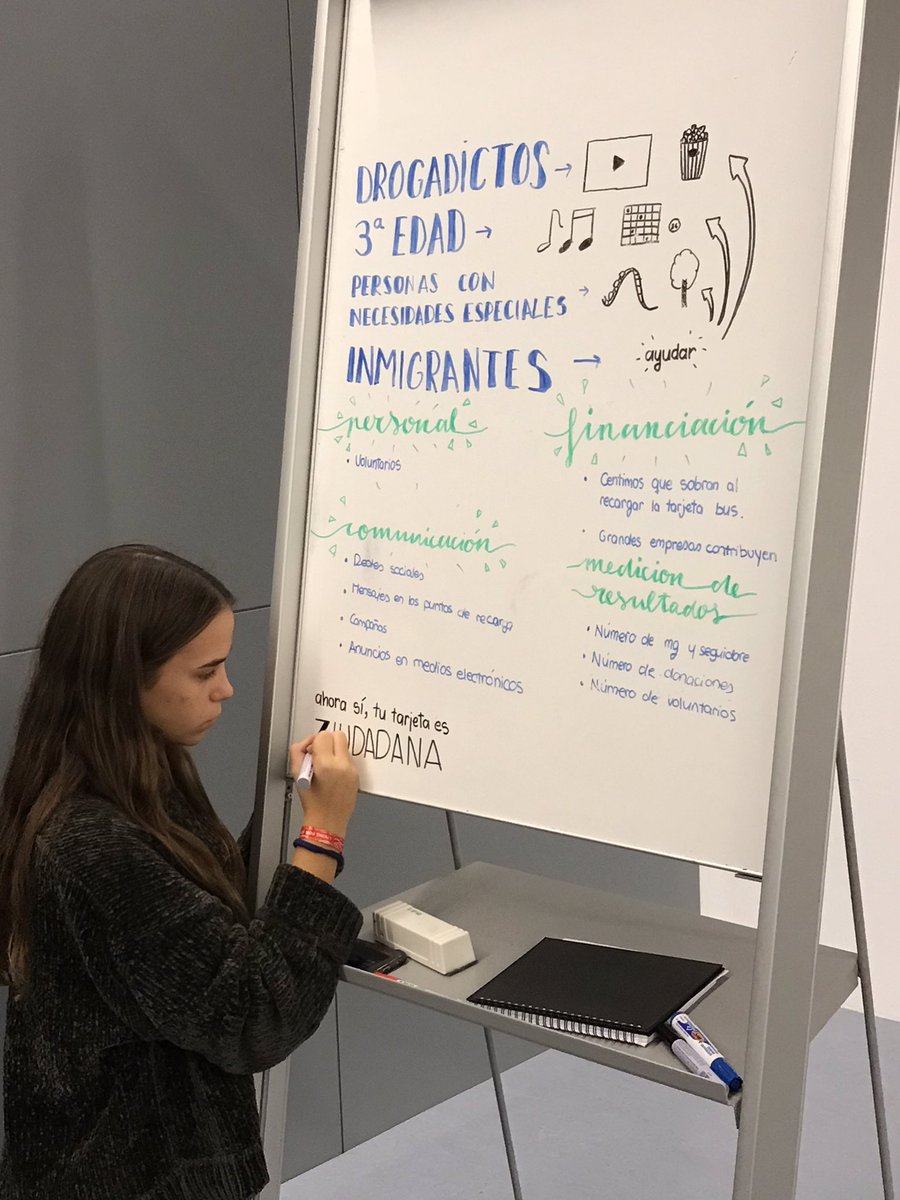 DROGADICTOS →
3ª EDAD →
PERSONAS CON
NECESIDADES ESPECIALES →
INMIGRANTES → ayudar
personal
• Voluntarios
comunicación
• Redes sociales
• Mensajes en los puntos de recarga
• Campañas
• Anuncios en medios electrónicos
financiación
• Centimos que sobran al
recargar la tarjeta bus.
• Grandes empresas contribuyen
medicion de
resultados
• Número de mg y seguidore
• Número de donaciones
• Número de voluntarios
ahora sí, tu tarjeta es
ZIUDADANA